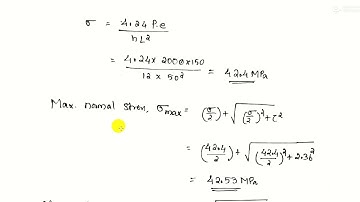 σ = 4.24 P.e / hL²
= 4.24 × 2000 × 150 / 12 × 50² = 42.4 MPa
Max. normal stress, σmax = (σ/2) + √((σ/2)² + τ²)
= (42.4/2) + √((42.4/2)² + 2.36²)
= 42.53 MPa